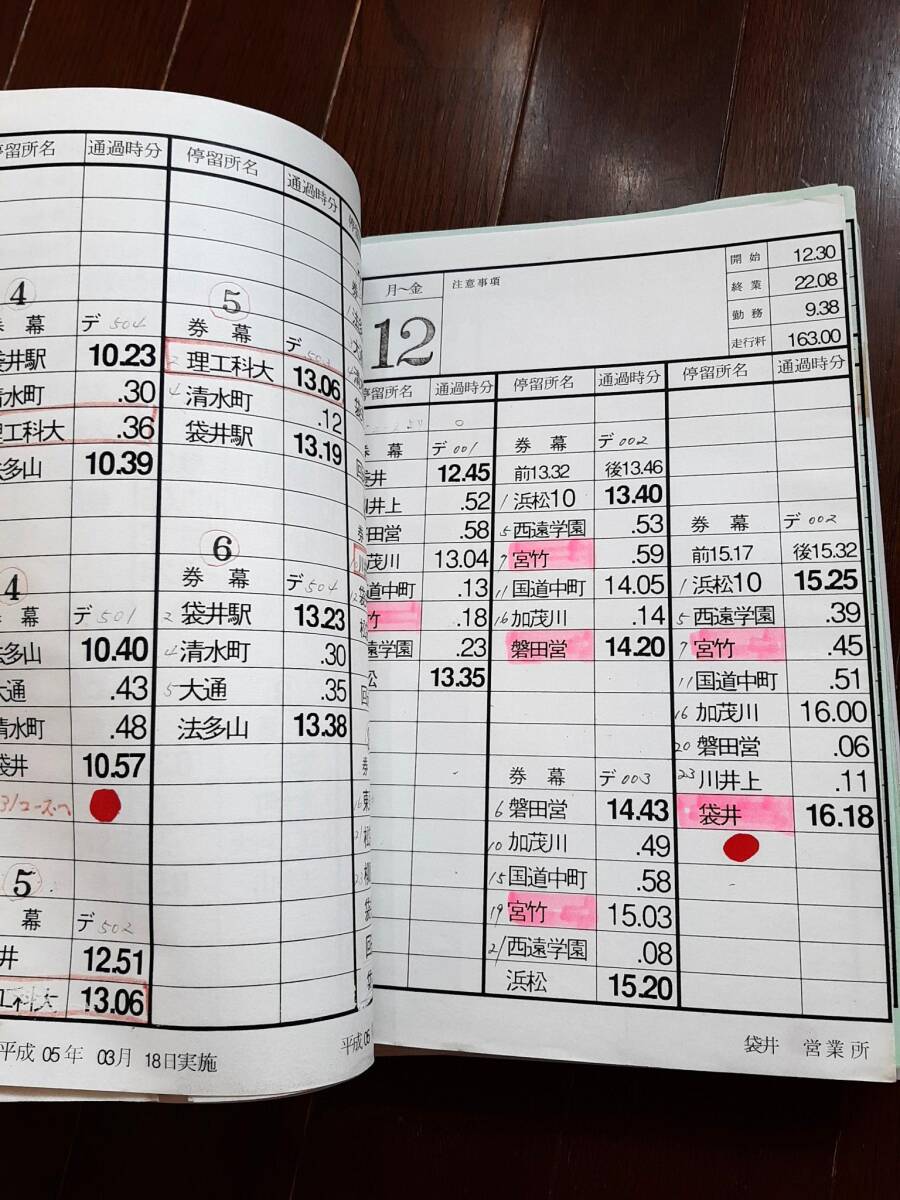 停留所名 通過時分 停留所名 通過時分
4
券 幕 デ 504
袋井駅 10.23
清水町 .30
理工科大 .36
法多山 10.39
4
幕 デ 501
法多山 10.40
大通 .43
清水町 .48
袋井 10.57
31コースへ
5
幕 デ 502
井 12.51
工科大 13.06
5
券 幕 デ 502
2 理工科大 13.06
4 清水町 .12
袋井駅 13.19
6
券 幕 デ 504
2 袋井駅 13.23
4 清水町 .30
5 大通 .35
法多山 13.38
平成 05年 03月 18日実施
平成 05
月～金
12
注意事項
開始 12.30
終業 22.08
勤務 9.38
走行粁 163.00
停留所名 通過時分 停留所名 通過時分 停留所名 通過時分
券 幕 デ 001
袋井 12.45
川井上 .52
磐田営 .58
加茂川 13.04
国道中町 .13
竹 .18
遠学園 .23
松 13.35
券 幕 デ 002
前13.32 後13.46
1 浜松10 13.40
5 西遠学園 .53
7 宮竹 .59
11 国道中町 14.05
16 加茂川 .14
磐田営 14.20
券 幕 デ 003
6 磐田営 14.43
10 加茂川 .49
15 国道中町 .58
19 宮竹 15.03
21 西遠学園 .08
浜松 15.20
券 幕 デ 002
前15.17 後15.32
1 浜松10 15.25
5 西遠学園 .39
7 宮竹 .45
11 国道中町 .51
16 加茂川 16.00
20 磐田営 .06
23 川井上 .11
袋井 16.18
袋井 営業所